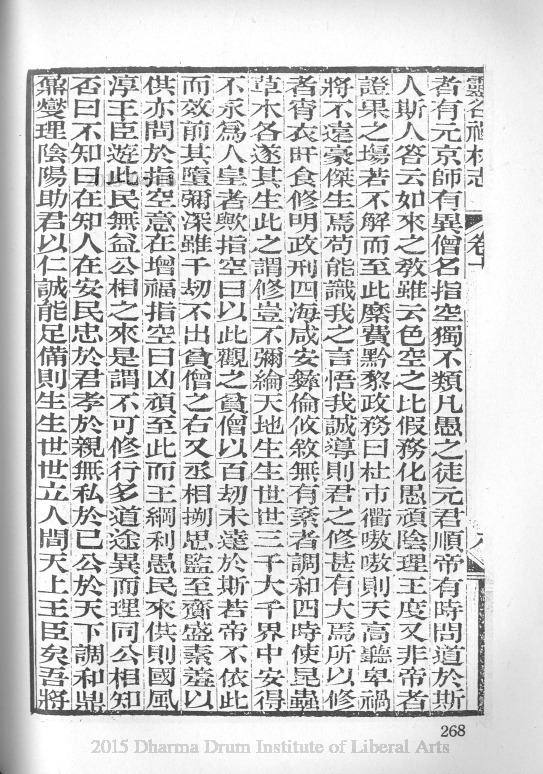 靈谷禪林志 卷十 八
者有元京師有異僧名指空獨不類凡愚之徒元君順帝有時問道於斯
人斯人答云如來之教雖云色空之比假務化愚頑陰理王度又非帝者
證果之塲若不解而至此縻費黔黎政務曰杜市衢嗷嗷則天高聽卑禍
將不遠豪傑生焉苟能識我之言悟我誠導則君之修甚有大焉所以修
者宵衣旰食修明政刑四海咸安彝倫攸敘無有紊者調和四時使昆蟲
草木各遂其生此之謂修豈不彌綸天地生生世世三千大千界中安得
不永爲人皇者歟指空曰以此觀之貧僧以百劫未達於斯若帝不依此
而效前其墮彌深雖千劫不出貧僧之右又丞相搠思監至齎盛素羞以
供亦問於指空意在增福指空曰凶頑至此而王綱利愚民來供則國風
淳王臣遊此民無益公相之來是謂不可修行多道途異而理同公相知
否曰不知曰在知人在安民忠於君孝於親無私於已公於天下調和鼎
鼐燮理陰陽助君以仁誠能足備則生生世世立人間天上王臣矣吾將
268
2015 Dharma Drum Institute of Liberal Arts